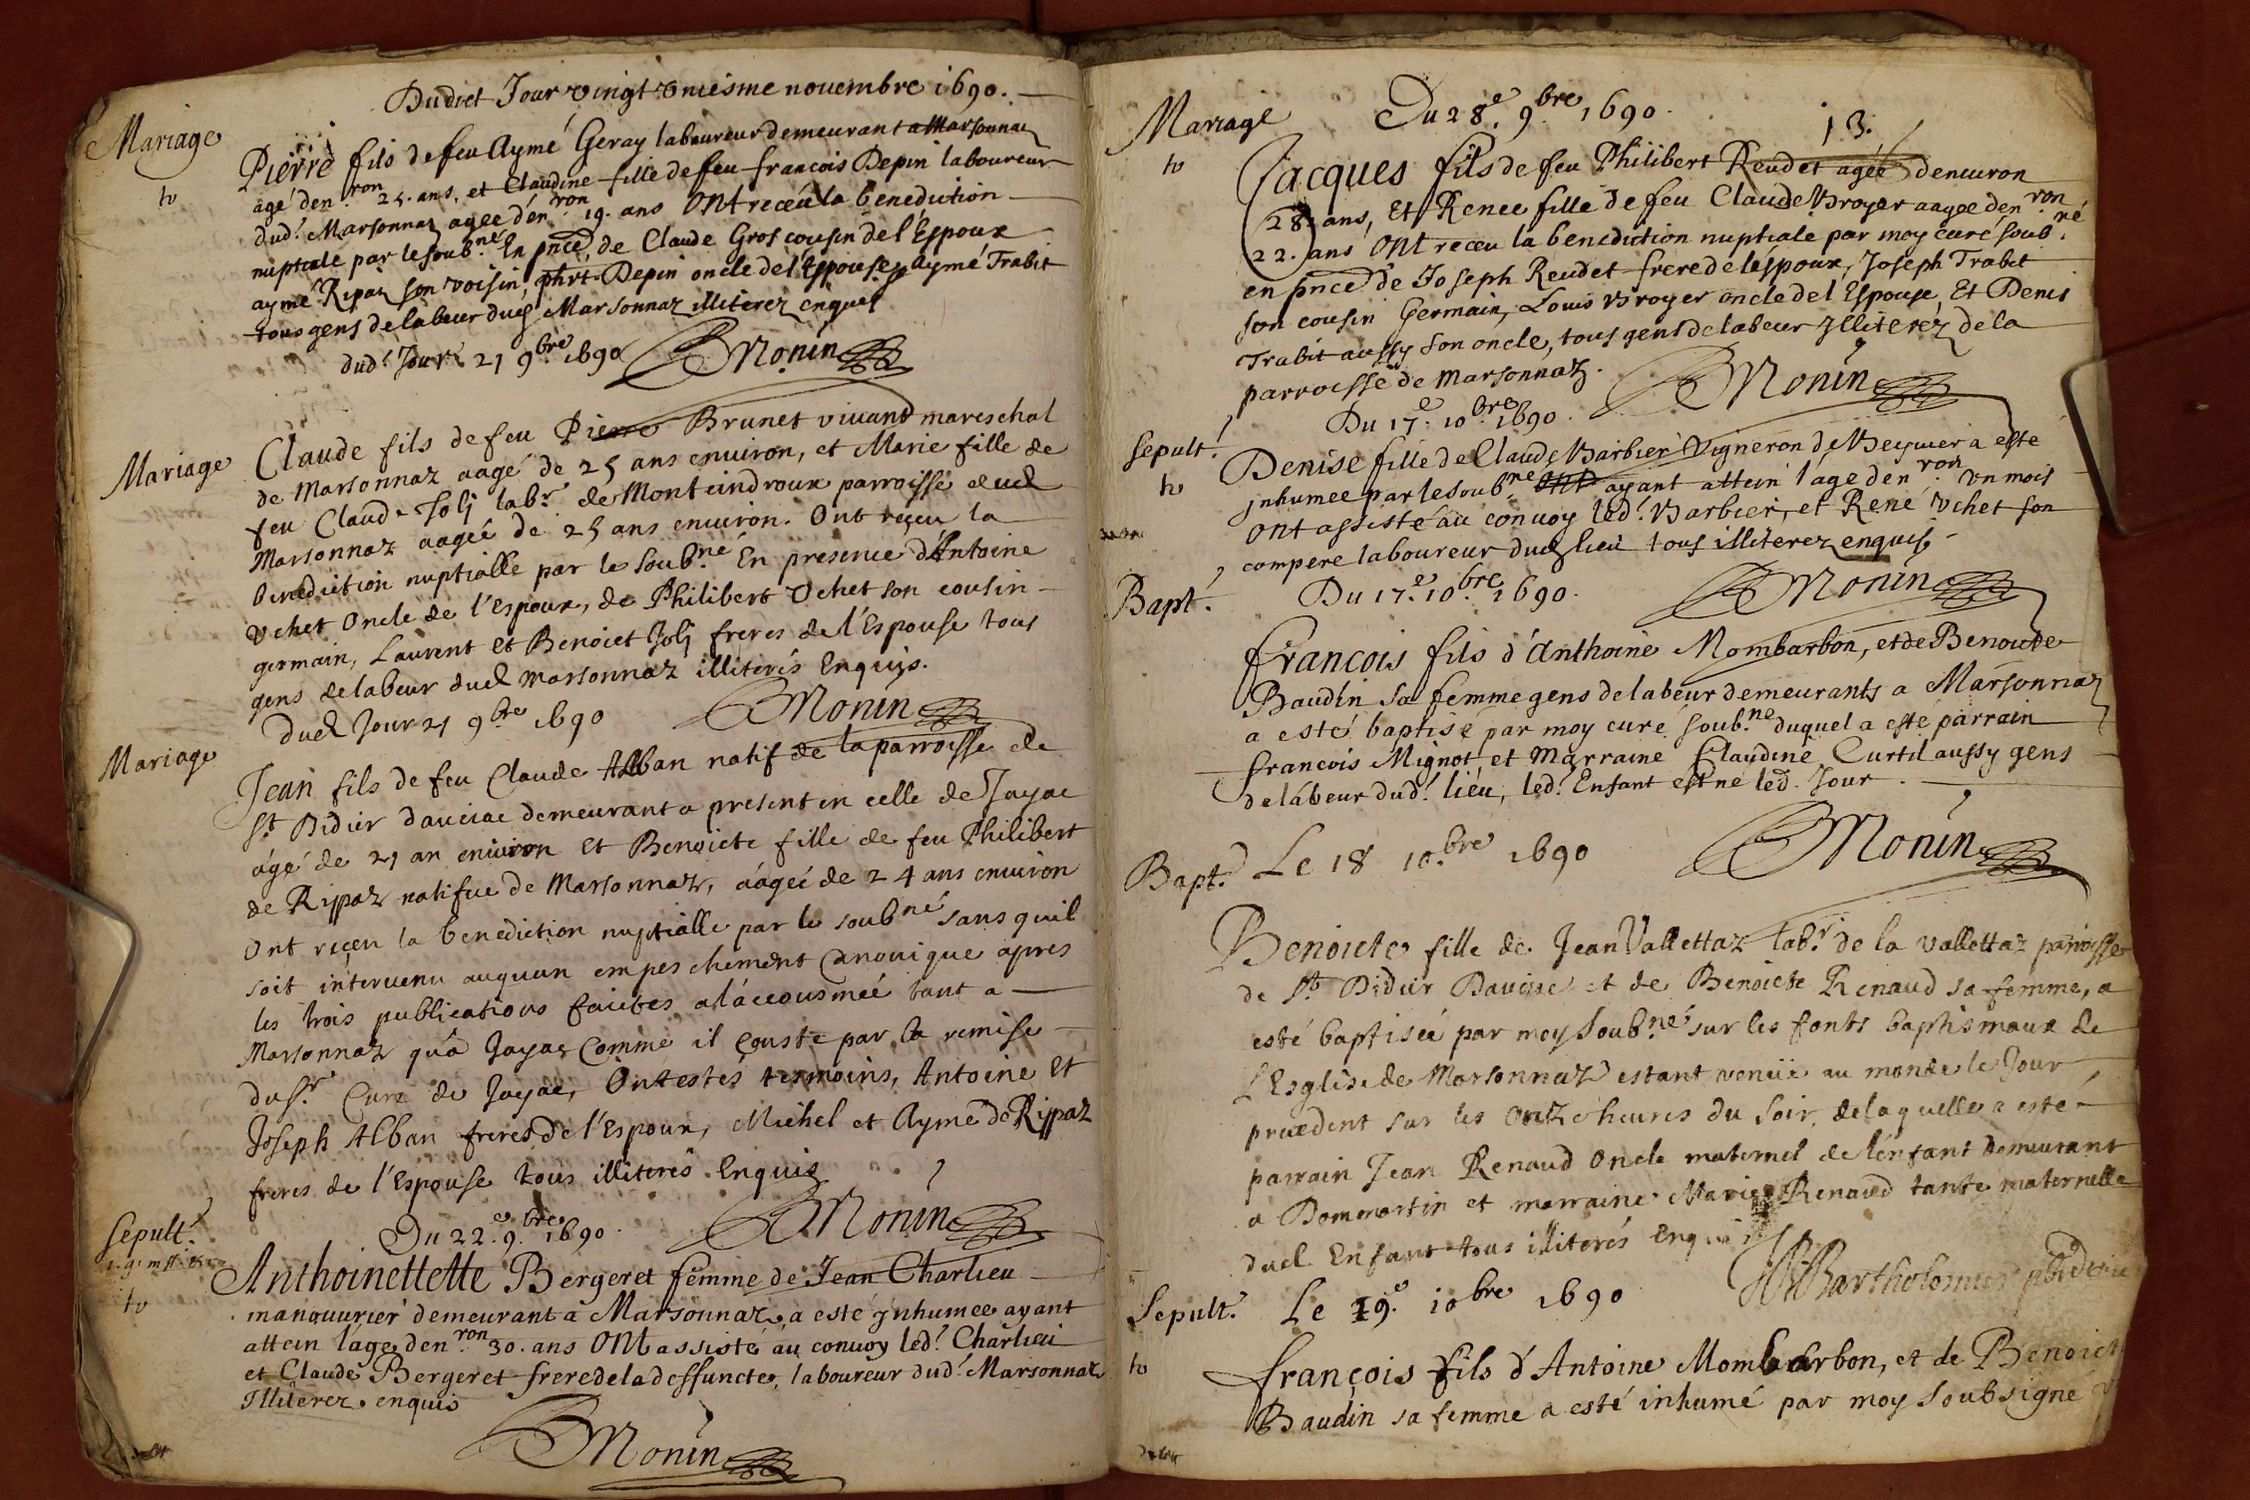 Dudict Jour vingt uniesme nouembre 1690.
Mariage
Pierre fils de feu Aymé Geray laboureur demeurant a Marsonnaz
agé den.ron 25. ans, et Claudine fille de feu francois Depin laboureur
dud.t Marsonnaz agee den.ron 19. ans ONt receu la benediction
nuptiale par le soub.né En pnce de Claude Gros cousin de l'Espoux
aymé Ripaz son voisin, phrt Depin oncle de l'Espouse, Aymé Trabit
tous gens de labeur dud Marsonnaz illiterez enquis
Monin
dud.t Jour 21 9bre 1690
Mariage
Claude fils de feu Pierre Brunet vivant mareschal
de Marsonnaz aagé de 25 ans enuiron, et Marie fille de
feu Claude Joli labr de Monteindroux parroisse dud
Marsonnaz aageé de 25 ans enuiron. Ont reçeu la
Benediction nuptialle par le soub.né En presence d'Antoine
Vchet Oncle de l'Espoux, de Philibert Vchet son cousin
germain, Laurent et Benoict Joli freres de l'Espouse tous
gens de labeur dud Marsonnaz illiterés Enquis.
Monin
Dud Jour 21 9bre 1690
Mariage
Jean fils de feu Claude Alban natif de la parroisse de
St Didier dauciac demeurant a present en celle de Jayac
ágé de 21 an enuiron Et Benoicte fille de feu Philibert
de Rippaz natifue de Marsonnaz, áageé de 24 ans enuiron
Ont reçeu la benediction nuptialle par le soub.né sans quil
soit interuenu auquun empeschement Canonique apres
les trois publications faictes a láccousmée tant a
Marsonnaz qu'a Jayac Comme il conste par la remise
du Sr Cure de Jayac, Ont estes tesmoins, Antoine Et
Joseph Alban freres de l'Espoux, Michel et Aymé de Rippaz
freres de l'Espouse tous illiterés Enquis
Monin
Sepult.
Du 22.e 9.bre 1690.
Anthoinettette Bergeret femme de Jean Charlieu
manouurier demeurant à Marsonnaz, a esté ynhumee ayant
attein láge den.ron 30. ans ONt assisté au conuoy led.t Charlieu
et Claude Bergeret frere de la deffuncte, laboureur dud.t Marsonnaz
Illiterez enquis
Monin
13.
Mariage
Du 28.e 9.bre 1690.
Jacques fils de feu Philibert Reudet agéé denuiron
28. ans, Et Renee fille de feu Claude Broyer aagee den.ron
22. ans ONt receu la benediction nuptiale par moy curé soub.né
en pnce de Joseph Reudet frere de lespoux, Joseph Trabit
son cousin Germain, Louis Broyer oncle de l Espouse, Et Denis
Trabit aussy son oncle, tous gens de labeur Jlliterez de la
parroisse de Marsonnaz.
Monin
Sepult.
Du 17.e 10.bre 1690.
Denise fille de Claude Barbier Vigneron de Beyuier a esté
jnhumee par le soub.né ont ayant attein láge den.ron Vn mois
ONt assisté au conuoy led.t Barbier, et René Vchet son
compere laboureur dud lieu tous illiterez enquis
Monin
Bapt.
Du 17.e 10.bre 1690.
francois fils d'Anthoine Mombarbon, et de Benoicte
Baudin sa femme gens de labeur demeurants a Marsonnaz
a esté baptisé par moy curé soub.né duquel a esté parrain
francois Mignot et Marraine Claudine Curtil aussy gens
de labeur dud.t lieu, led.t Enfant est né led. Jour.
Monin
Bapt.
Le 18 10.bre 1690
Benoicte fille de Jean Vallettaz labr de la vallettaz parroisse
de St Didier Dauciac et de Benoicte Renaud sa femme, a
esté baptiseé par moy soub.né sur les fonts baptismaux de
L'Esglise de Marsonnaz estant venüe au monde le Jour
precedent sur les Onze heures du soir, de laquelle a esté
parrain Jean Renaud Oncle maternel de lénfant demeurant
a Domemartin et marraine Marie Renaud tante maternelle
dud Enfant tous illiterés Enquis
Bartholomier
Sepult.
Le 19.e 10bre 1690
françois fils d'Antoine Mombarbon, et de Benoict
Baudin sa femme a esté inhumé par moy soubsigné